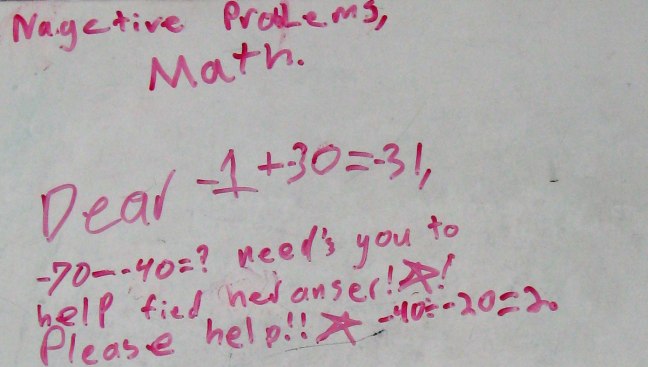 Nagetive Problems,
Math.
Dear -1+-30=-31,
-70--40=? need's you to
help fied her anser!☆!
Please help!! ☆ -40÷-20=2.